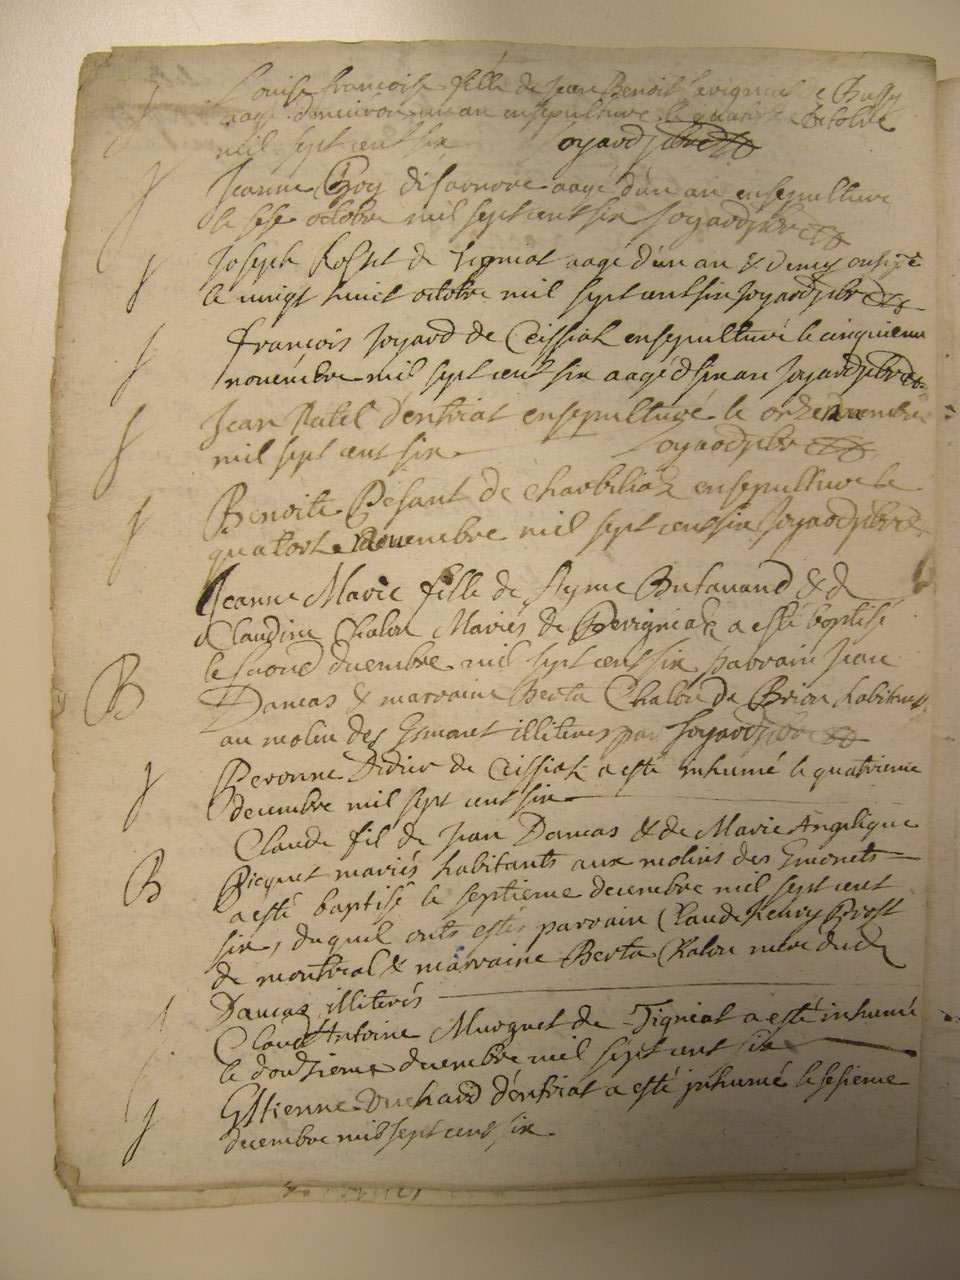 Louise françoise fille de Jean Benoit de Bussy
aagé d'environ un an ensepulturé le octobre
mil sept cent six Joyard pbr
S Jeanne d'Isarnore aagé d'un an ensepulturé
le sese octobre mil sept cent six Joyard pbr
S Joseph de Tigniat aagé d'un an & demy
le vingt huict octobre mil sept cent six Joyard pbr
S françois Joyard de Ceissiat ensepulturé le cinquieme
novembre mil sept cent six aagé d six an Joyard pbr
S Jean d'entriat ensepulturé le onze novembre
mil sept cent six Joyard pbr
S Benoite Pesant de Charbiliat ensepulturé le
quatorse novembre mil sept cent six Joyard pbr
Jeanne Marie fille de Ayme & d
Claudine Chalon Mariés de Pevigniat a esté baptisé
le second decembre mil sept cent six parrain Jean
B Damas & marraine Berta Chalon de Brion habitant
au molin des illiterés par Joyard pbr
S Peronne Didier de Ceissiat a esté inhumé le quatrieme
decembre mil sept cent six
Claude fil de Jean Damas & de Marie Angelique
B Picquet mariés habitants aux molins des
a esté baptisé le septieme decembre mil sept cent
six, duquel onts estés parrain Claude Henry Prost
de montreal & marraine Berta Chalon mere dud
Damas illiterés
S Claud Antoine de Tigniat a esté inhumé
le douzieme decembre mil sept cent six
S Estienne d'entriat a esté inhumé le sesieme
decembre mil sept cent six.